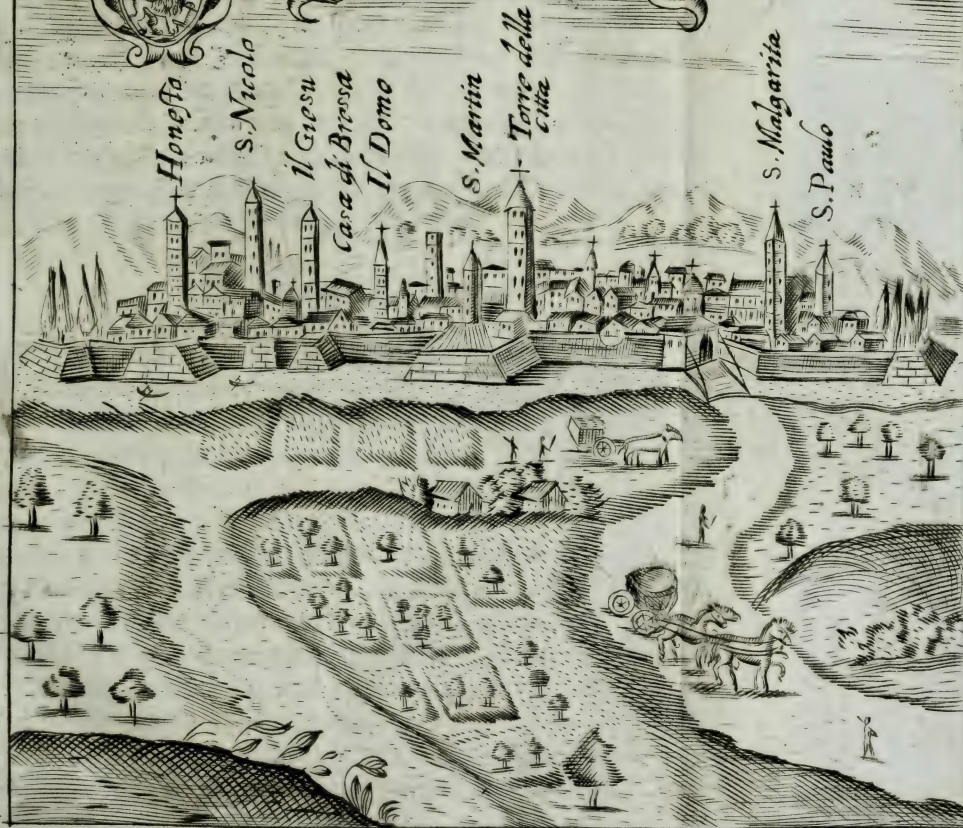 Honesta
S. Nicolo
il Giesu
Casa di Bressa
Il Domo
S. Martin
Torre della
citta
S. Malgarita
S. Paulo